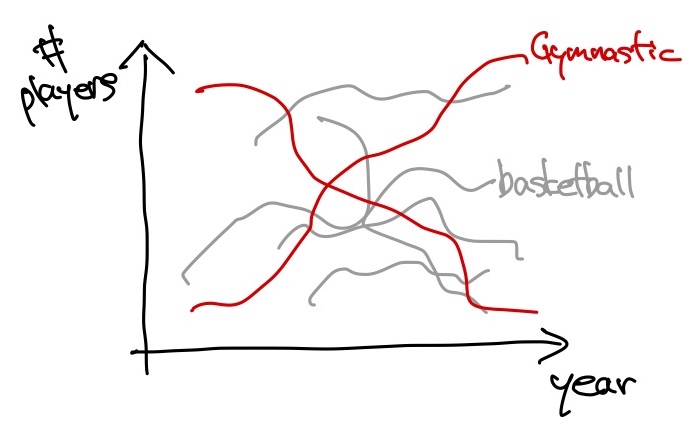 #
players
Gymnastic
basketball
year